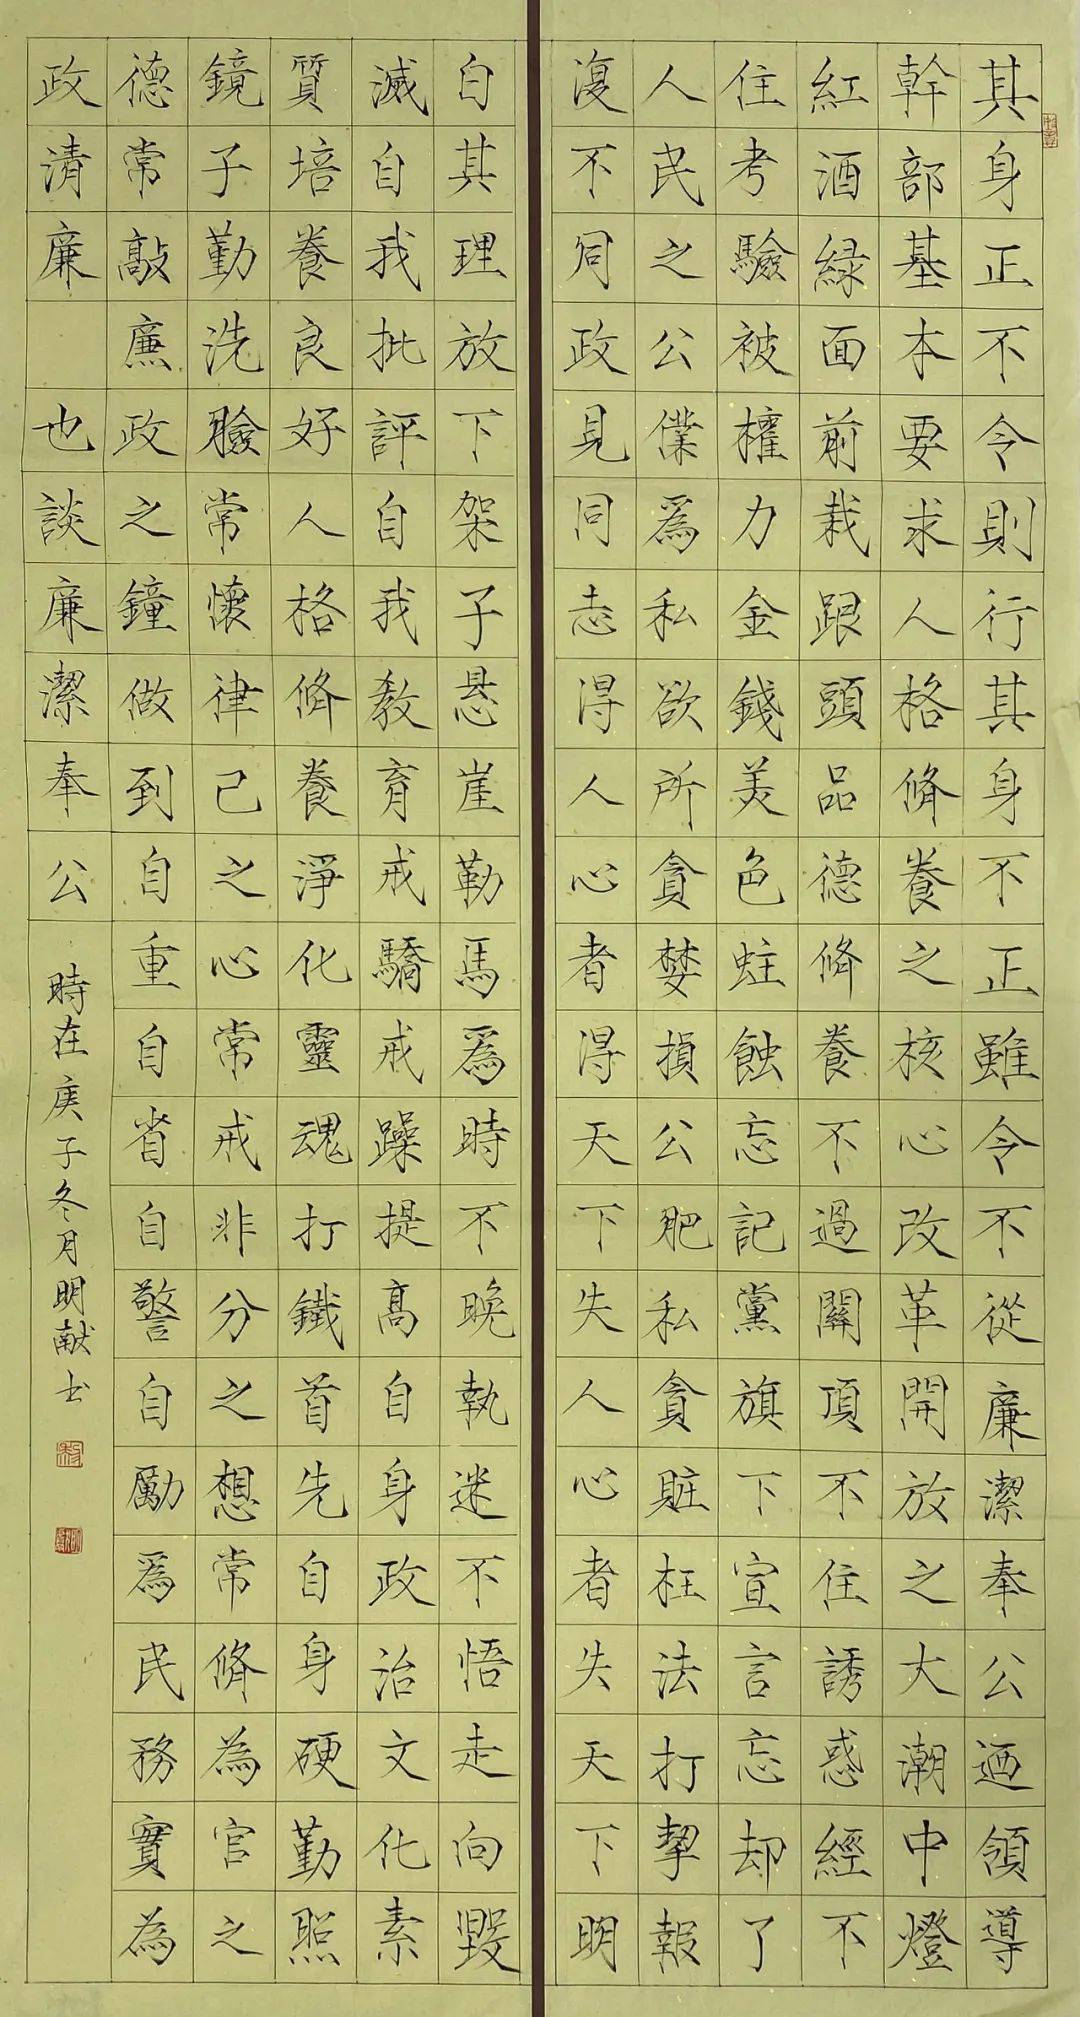 其身正不令則行其身不正雖令不從廉潔奉公迺領導
幹部基本要求人格脩養之核心改革開放之大潮中燈
紅酒緑面前栽跟頭品德脩養不過關頂不住誘惑經不
住考驗被權力金錢美色蛀蝕忘記黨旗下宣言忘却了
人民之公僕爲私欲所貪婪損公肥私貪賍枉法打擊報
復不同政見同志得人心者得天下失人心者失天下明
白其理放下架子悬崖勒馬爲時不晚執迷不悟走向毀
滅自我批評自我教育戒驕戒躁提高自身政治文化素
質培養良好人格脩養淨化靈魂打鐵首先自身硬勤照
鏡子勤洗臉常懷律己之心常戒非分之想常脩為官之
德常敲廉政之鐘做到自重自省自警自勵爲民務實為
政清廉 也談廉潔奉公
時在庚子冬月明献书